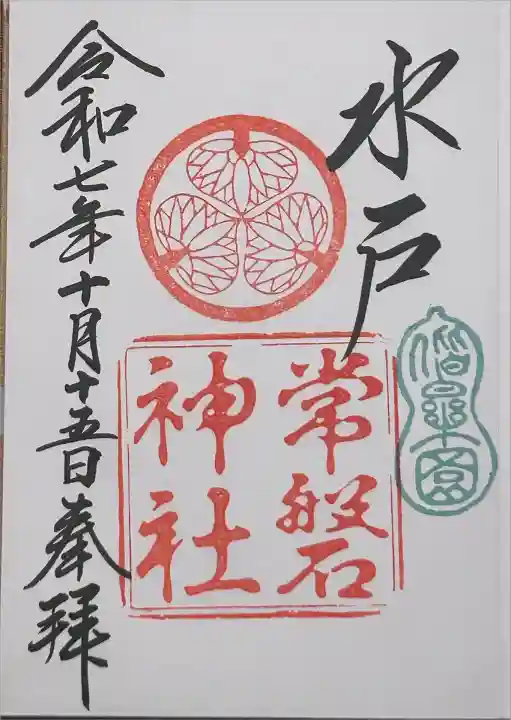 水戸
偕楽園
常磐
神社
令和七年十月十五日奉拜